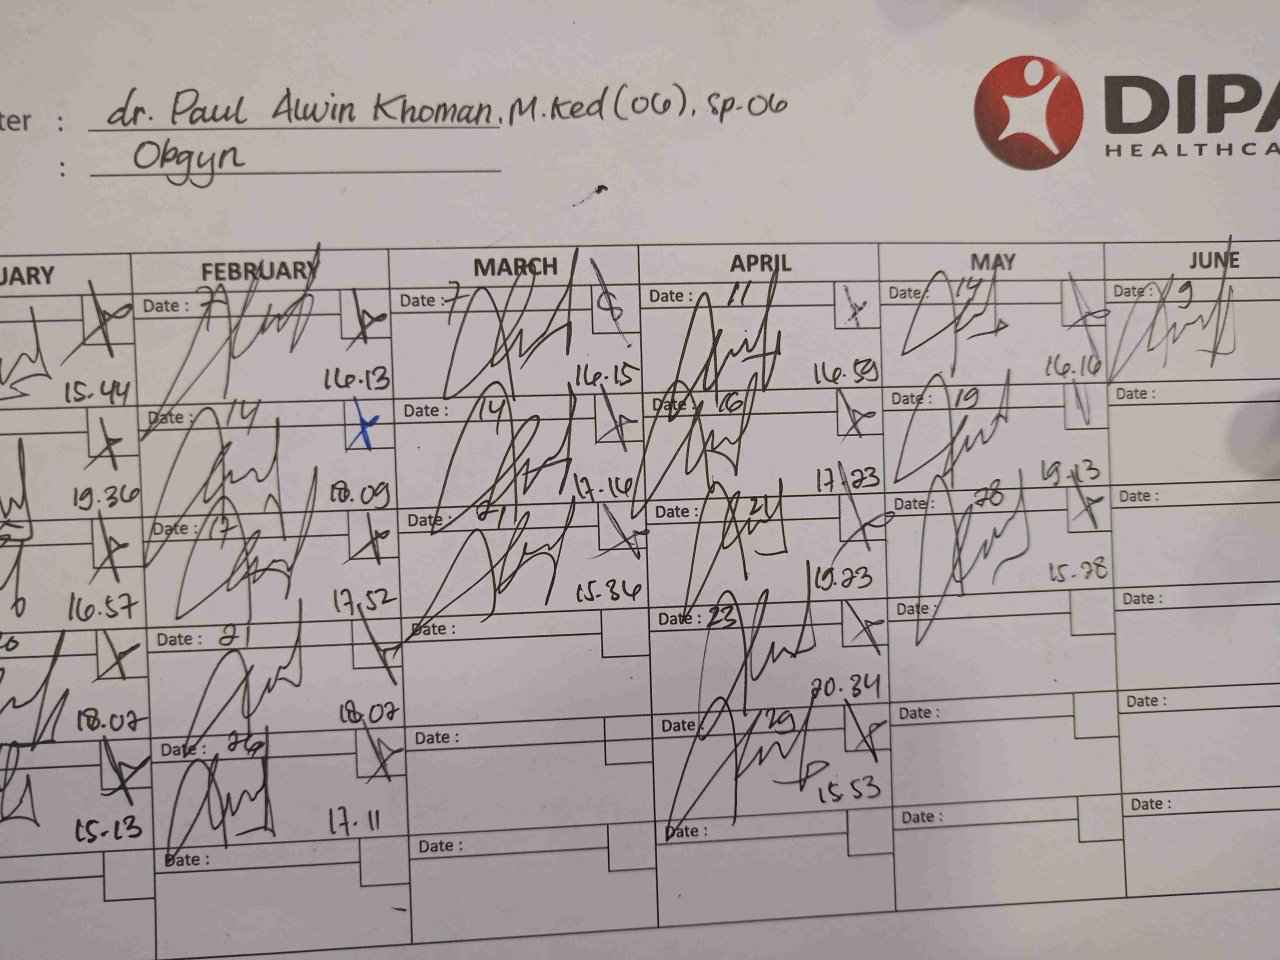 ter : dr. Paul Alwin Khoman, M.Ked(OG), Sp.OG
: Obgyn
DIPA
HEALTHCA
UARY FEBRUARY MARCH APRIL MAY JUNE
Date : 7 Date : 7 Date : 11 Date : 14 Date : 9
15.44 16.13 16.15 16.59 16.16
Date : 14 Date : 14 Date : 16 Date : 19 Date :
19.36 18.09 17.16 17.23 19.13
Date : 17 Date : 21 Date : 21 Date : 28 Date :
16.57 17.52 15.36 19.23 15.28
20 Date : 21 Date : Date : 23 Date : Date :
18.02 18.02 20.34
Date : 26 Date : Date : 29 Date : Date :
15.13 17.11 15.53
Date : Date : Date : Date : Date :